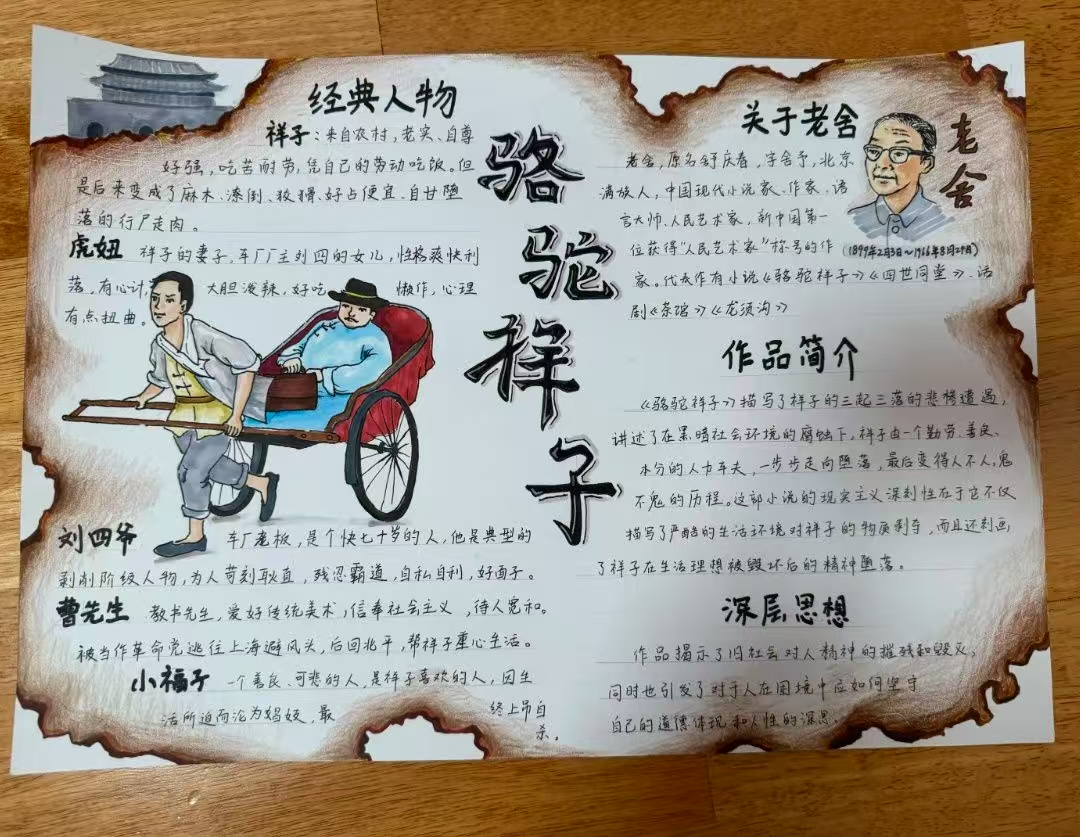 经典人物
祥子：来自农村，老实、自尊
好强，吃苦耐劳，凭自己的劳动吃饭。但
是后来变成了麻木、潦倒、狡猾、好占便宜、自甘堕
落的行尸走肉。
虎妞 祥子的妻子，车厂厂主刘四的女儿，性格爽快利
落，有心计， 大胆泼辣，好吃 懒作，心理
有点扭曲。
刘四爷 车厂老板，是个快七十岁的人，他是典型的
剥削阶级人物，为人苛刻耿直，残忍霸道，自私自利，好面子。
曹先生 教书先生，爱好传统美术，信奉社会主义，待人宽和。
被当作革命党逃往上海避风头，后回北平，帮祥子重心生活。
小福子 一个善良、可悲的人，是祥子喜欢的人，因生
活所迫而沦为娼妓，最 终上吊自
杀。
骆驼祥子
关于老舍
老舍，原名舒庆春，字舍予，北京
满族人，中国现代小说家、作家、语
言大师、人民艺术家，新中国第一
位获得“人民艺术家”称号的作
家。代表作有小说《骆驼祥子》《四世同堂》、话
剧《茶馆》《龙须沟》
老舍
(1899年2月3日~1966年8月24日)
作品简介
《骆驼祥子》描写了祥子的三起三落的悲惨遭遇，
讲述了在黑暗社会环境的腐蚀下，祥子由一个勤劳、善良、
本分的人力车夫，一步步走向堕落，最后变得人不人，鬼
不鬼的历程。这部小说的现实主义深刻性在于它不仅
描写了严酷的生活环境对祥子的物质剥夺，而且还刻画
了祥子在生活理想被毁坏后的精神堕落。
深层思想
作品揭示了旧社会对人精神的摧残和毁灭，
同时也引发了对于人在困境中应如何坚守
自己的道德体现和人性的深思。